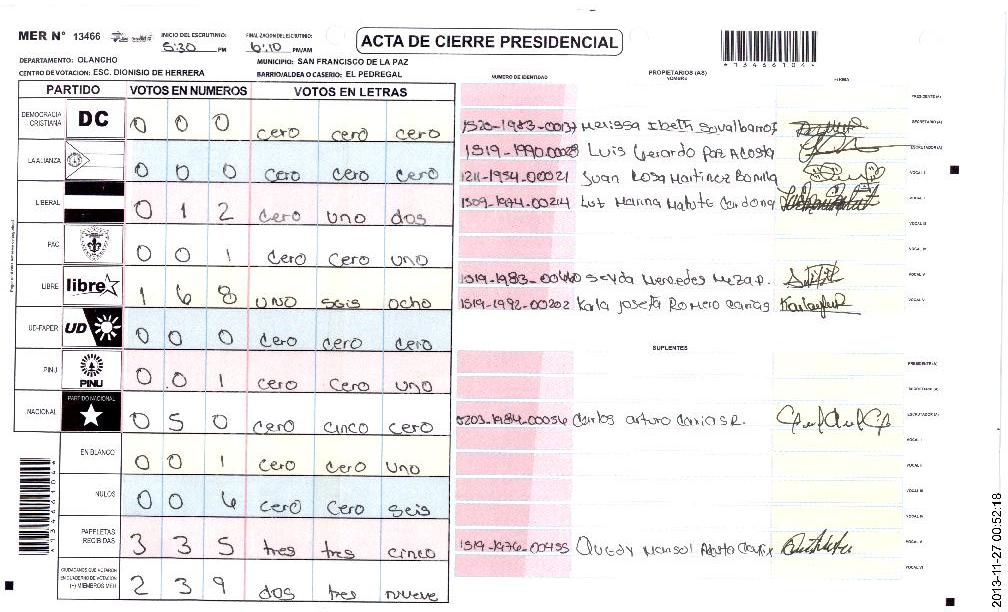 MER N° 13466
INICIO DEL ESCRUTINIO: 5:30 PM
FINALIZACION DEL ESCRUTINIO: 6:10 PM/AM
ACTA DE CIERRE PRESIDENCIAL
*13466104*
DEPARTAMENTO: OLANCHO
MUNICIPIO: SAN FRANCISCO DE LA PAZ
CENTRO DE VOTACION: ESC. DIONISIO DE HERRERA
BARRIO/ALDEA O CASERIO: EL PEDREGAL
PARTIDO VOTOS EN NUMEROS VOTOS EN LETRAS
DEMOCRACIA CRISTIANA DC 0 0 0 cero cero cero
LA ALIANZA 0 0 0 cero cero cero
LIBERAL 0 1 2 cero uno dos
PAC 0 0 1 cero cero uno
LIBRE libre 1 6 8 uno seis ocho
UD-FAPER UD 0 0 0 cero cero cero
PINU PINU 0 0 1 cero cero uno
NACIONAL PARTIDO NACIONAL 0 5 0 cero cinco cero
EN BLANCO 0 0 1 cero cero uno
NULOS 0 0 6 cero cero seis
PAPELETAS RECIBIDAS 3 3 5 tres tres cinco
CIUDADANOS QUE VOTARON EN CUADERNO DE VOTACION (+) MIEMBROS MER 2 3 9 dos tres nueve
NUMERO DE IDENTIDAD PROPIETARIOS (AS) NOMBRE FIRMA
PRESIDENTE (A)
SECRETARIO (A)
1519-1990-00028 Luis Gerardo Paz Acosta ESCRUTADOR (A)
1211-1954-00021 Juan Rosa Martinez Bonilla VOCAL I
1509-1974-00214 Luz Marina Matute Cardona
VOCAL III
VOCAL IV
1519-1983- Mercedes Meza P. VOCAL V
1519-1992-00202 Karla Josefa Romero VOCAL VI
SUPLENTES
PRESIDENTE (A)
SECRETARIO (A)
0203-1984-00056 Carlos arturo ESCRUTADOR (A)
VOCAL I
VOCAL II
VOCAL III
VOCAL IV
1519-1976-00455 VOCAL V
VOCAL VI
2013-11-27 00:52:18